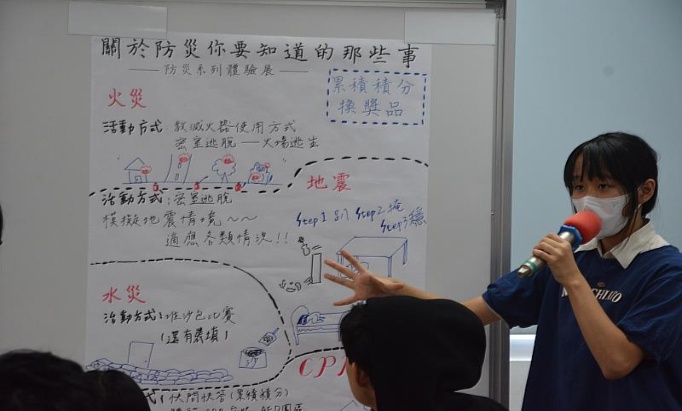 關於防災你要知道的那些事
——防災系列體驗展——
累積積分
換獎品
火災
活動方式 教滅火器使用方式
密室逃脫——火場逃生
地震
活動方式:密室逃脫
模擬地震情境~~
適應各類情況!!
Step1 趴 Step2 掩
Step3 穩
水災
活動方式:堆沙包比賽
(還有義填)
CPR
式:快問快答(累積積分)